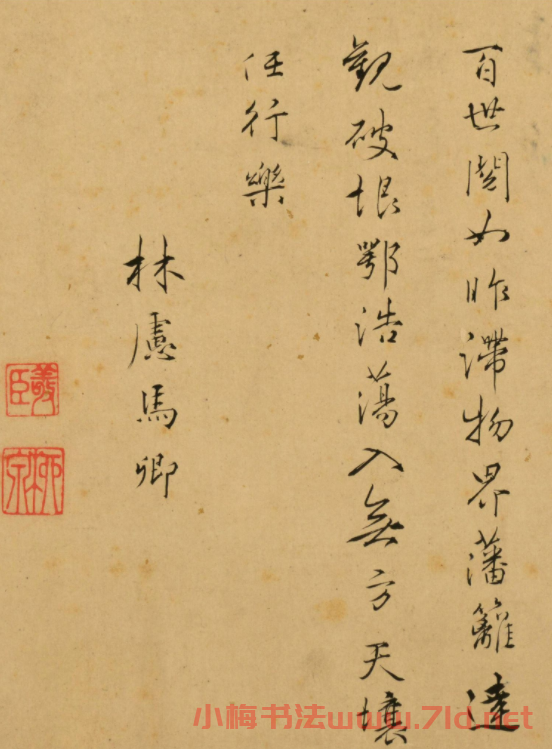 百世閱如昨滯物界藩籬達
觀破垠鄂浩蕩入無方天壤
任行樂
林慮馬卿
羲臣
師宗
小梅书法www.7ld.net